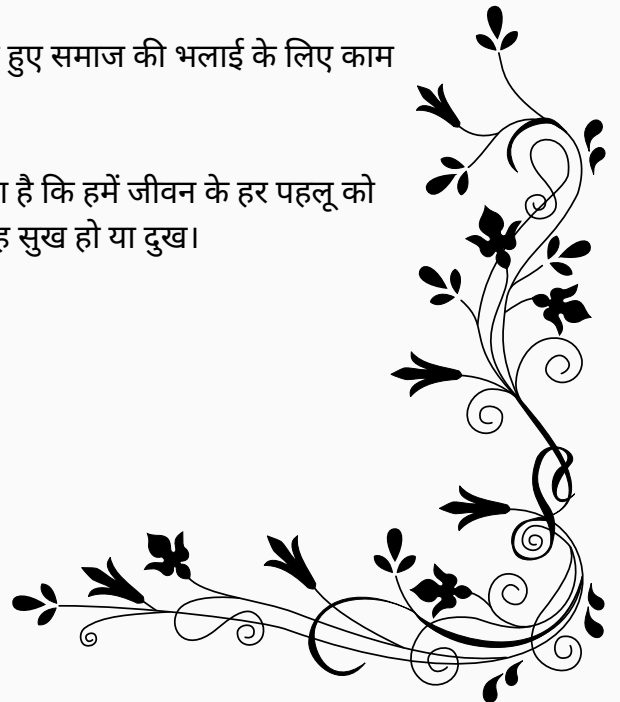 हुए समाज की भलाई के लिए काम
है कि हमें जीवन के हर पहलू को
सुख हो या दुख।